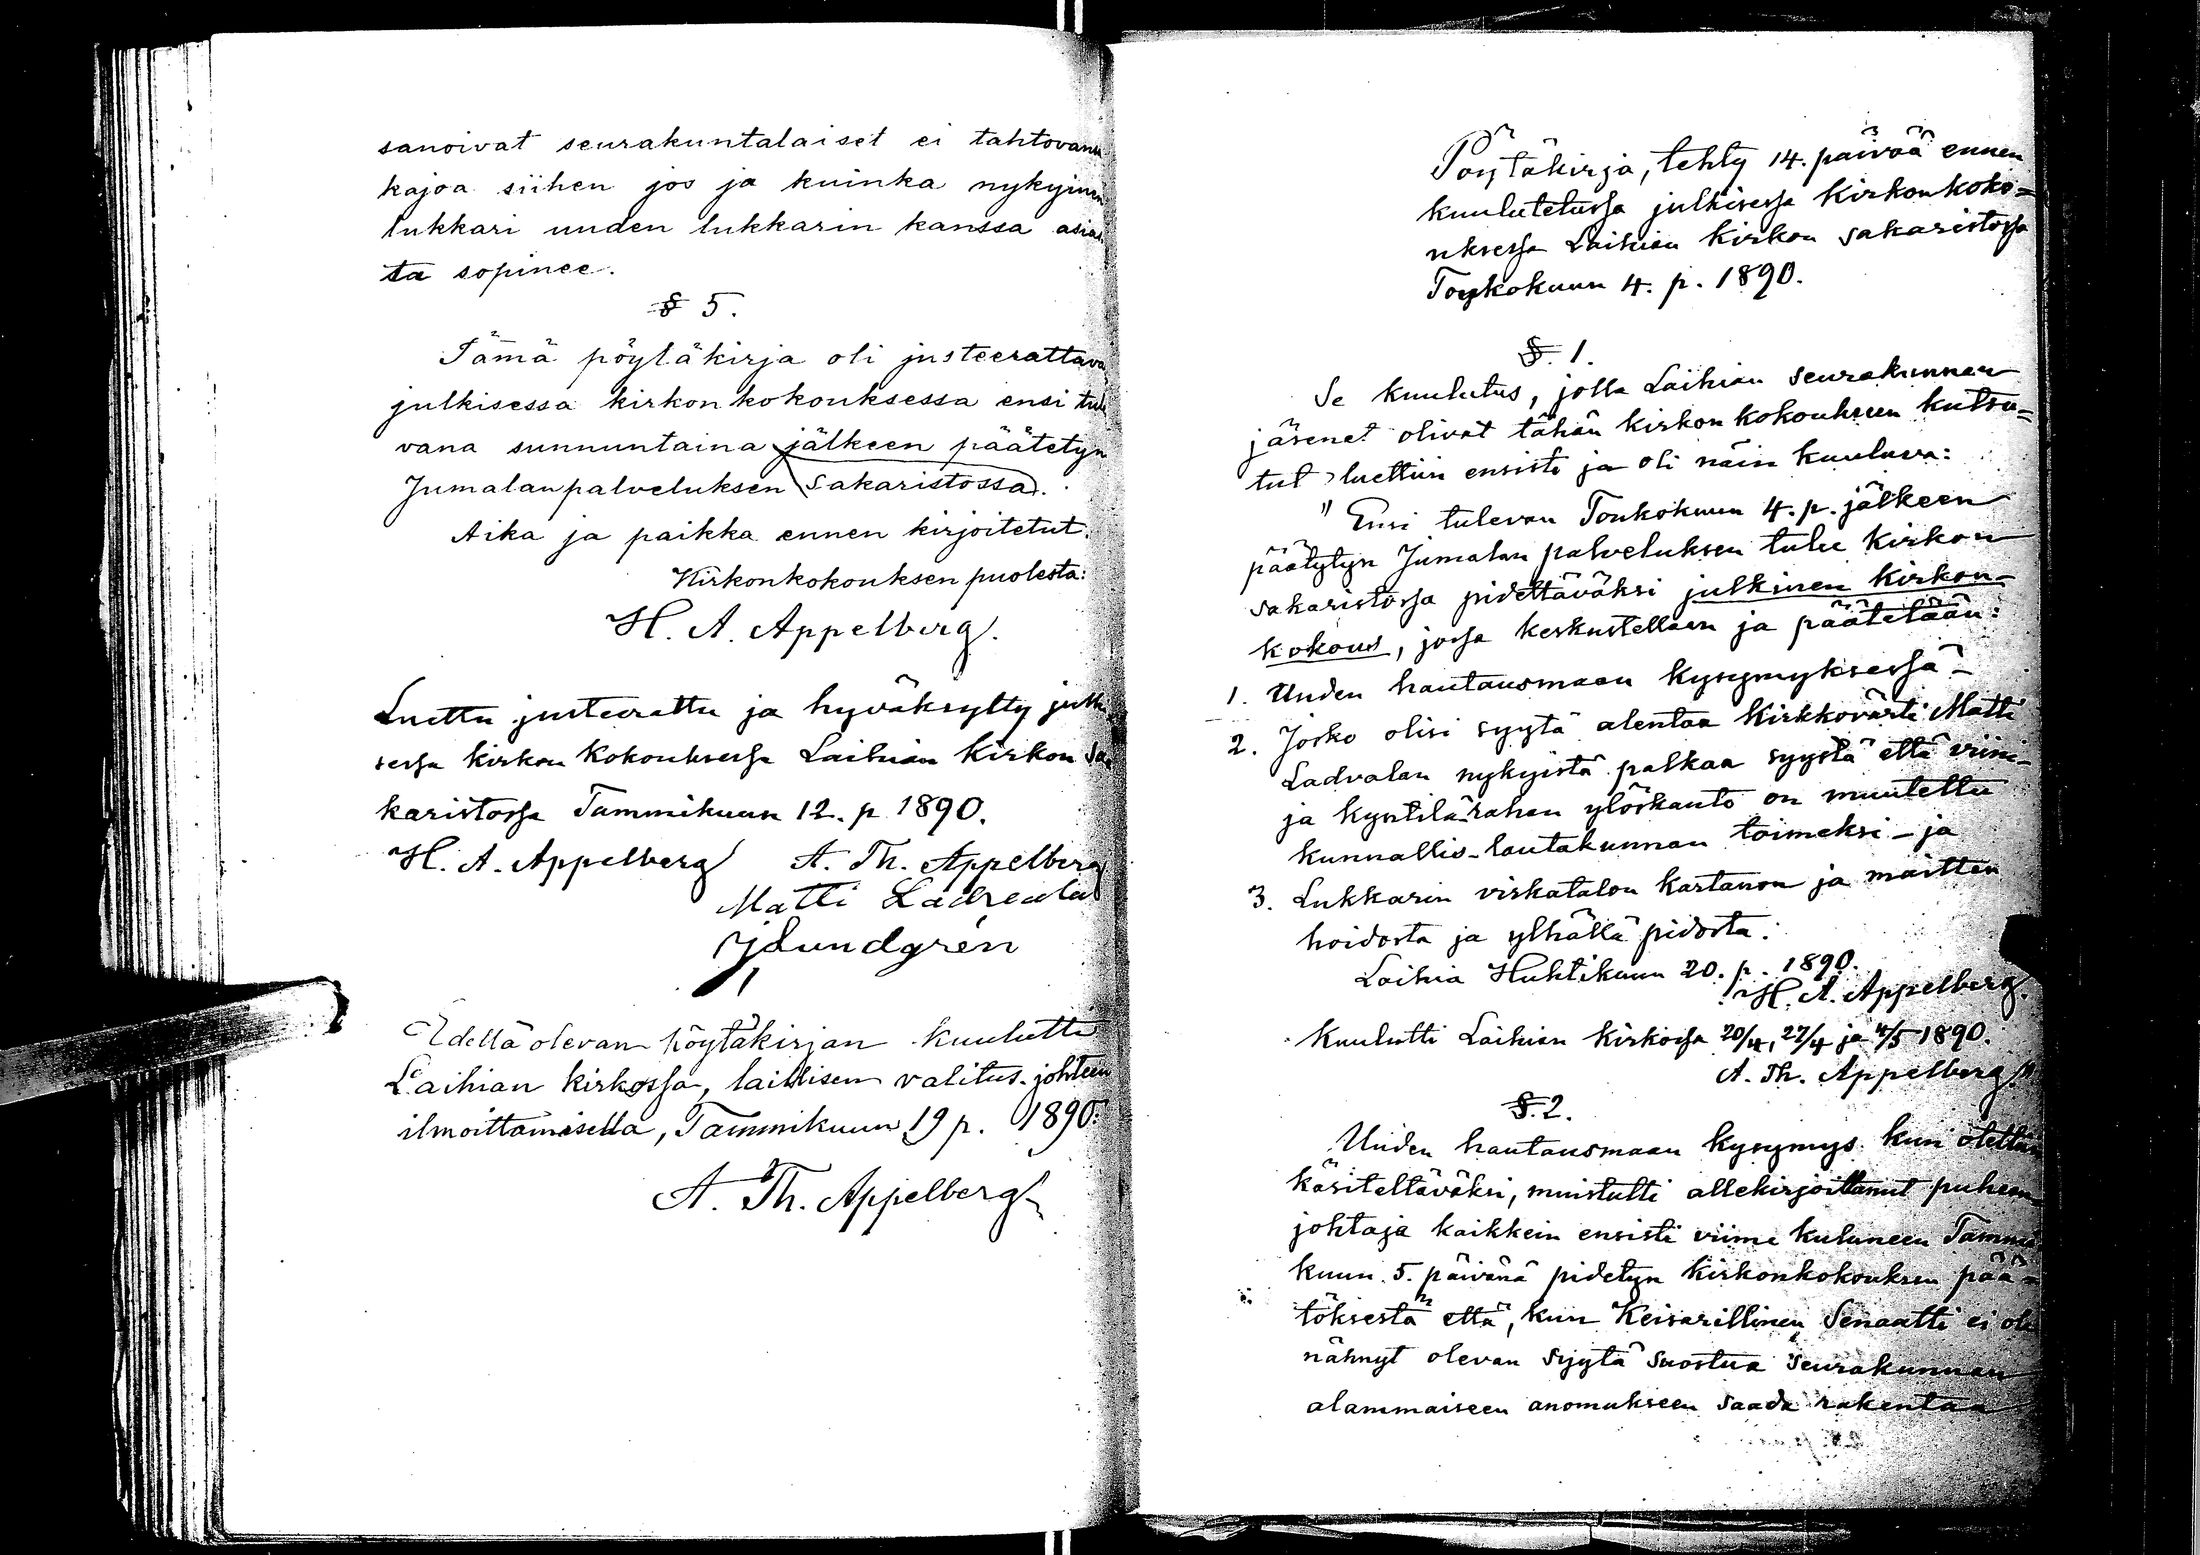 sanoivat seurakuntalaiset ei tahtovansa
kajoa siihen jos ja kuinka nykyinen
lukkari uuden lukkarin kanssa asias
ta sopinee.
§ 5.
Tämä pöytäkirja oli justeerattava
julkisessa kirkonkokouksessa ensi tule
vana sunnuntaina jälkeen päätetyn
Jumalanpalveluksen Sakaristossa.
Aika ja paikka ennen kirjoitetut.
Kirkonkokouksen puolesta:
H. A. Appelberg.
Luettu justeerattu ja hyväksytty julki
sessa kirkon kokouksessa Laihian kirkon Sa
karistossa Tammikuun 12. p. 1890.
H. A. Appelberg A. Th. Appelberg
Matti Ladvala
JLundgrén
Edellä olevan pöytäkirjan kuulutti
Laihian kirkossa, laillisen valitus-johteen
ilmoittamisella, Tammikuun 19 p. 1890:
A. Th. Appelberg
Pöytäkirja, tehty 14. päivää ennen
kuulutetussa julkisessa Kirkonkoko=
uksessa Laihian Kirkon sakaristossa
Toukokuun 4. p. 1890.
§. 1.
Se kuulutus, jolla Laihian seurakunnan
jäsenet olivat tähän kirkon kokoukseen kutsu=
tut, luettiin ensiste ja oli näin kuuluva:
"Ensi tulevan Toukokuun 4. p. jälkeen
päätytyn Jumalan palveluksen tulee Kirkon
sakaristossa pidettäväksi julkinen Kirkon-
kokous, jossa keskustellaan ja päätetään:
1. Uuden hautausmaan kysymyksessä -
2. Josko olisi syytä alentaa Kirkkovärti Matti
Ladvalan nykyistä palkaa syystä että viini-
ja kyntilärahan ylöskanto on muutettu
kunnallis-lautakunnan toimeksi - ja
3. Lukkarin virkatalon kartanon ja maitten
hoidosta ja ylhällä pidosta.
Laihia Huhtikuun 20. p. 1890.
H. A. Appelberg.
Kuulutti Laihian kirkossa 20/4, 27/4 ja 4/5 1890.
A. Th. Appelberg."
§. 2.
Uuden hautausmaan kysymys kun otettiin
käsiteltäväksi, muistutti allekirjoittanut puheen
johtaja kaikkein ensisti viime kuluneen Tammi
kuun 5. päivänä pidetyn kirkonkokouksen pää=
töksestä että, kun Keisarillinen Senaatti ei ole
nähnyt olevan syytä suostua seurakunnan
alammaiseen anomukseen saada rakentaa